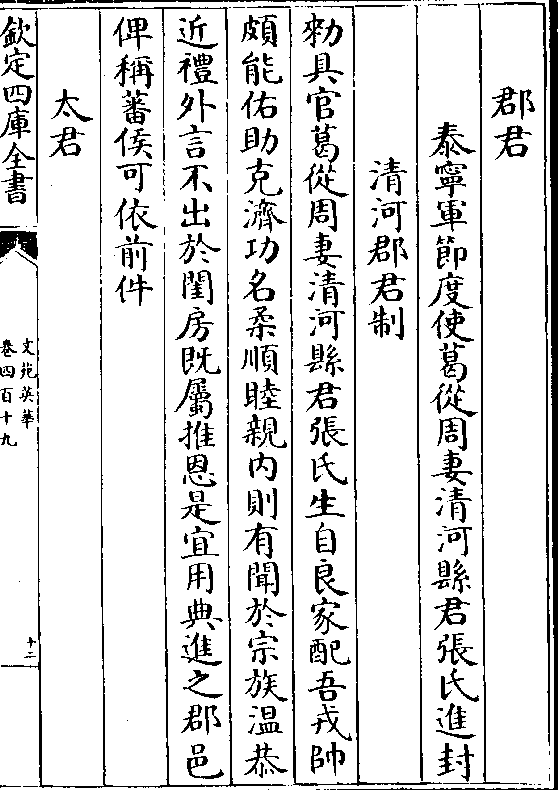 郡君
泰寧軍節度使葛從周妻清河縣君張氏進封
清河郡君制
勑具官葛從周妻清河縣君張氏生自良家配吾戎帥
頗能佑助克濟功名柔順睦親内則有聞於宗族温恭
近禮外言不出於閨房既屬推恩是宜用典進之郡邑
俾稱蕃侯可依前件
太君
欽定四庫全書
文苑英華
卷四百十九
十二